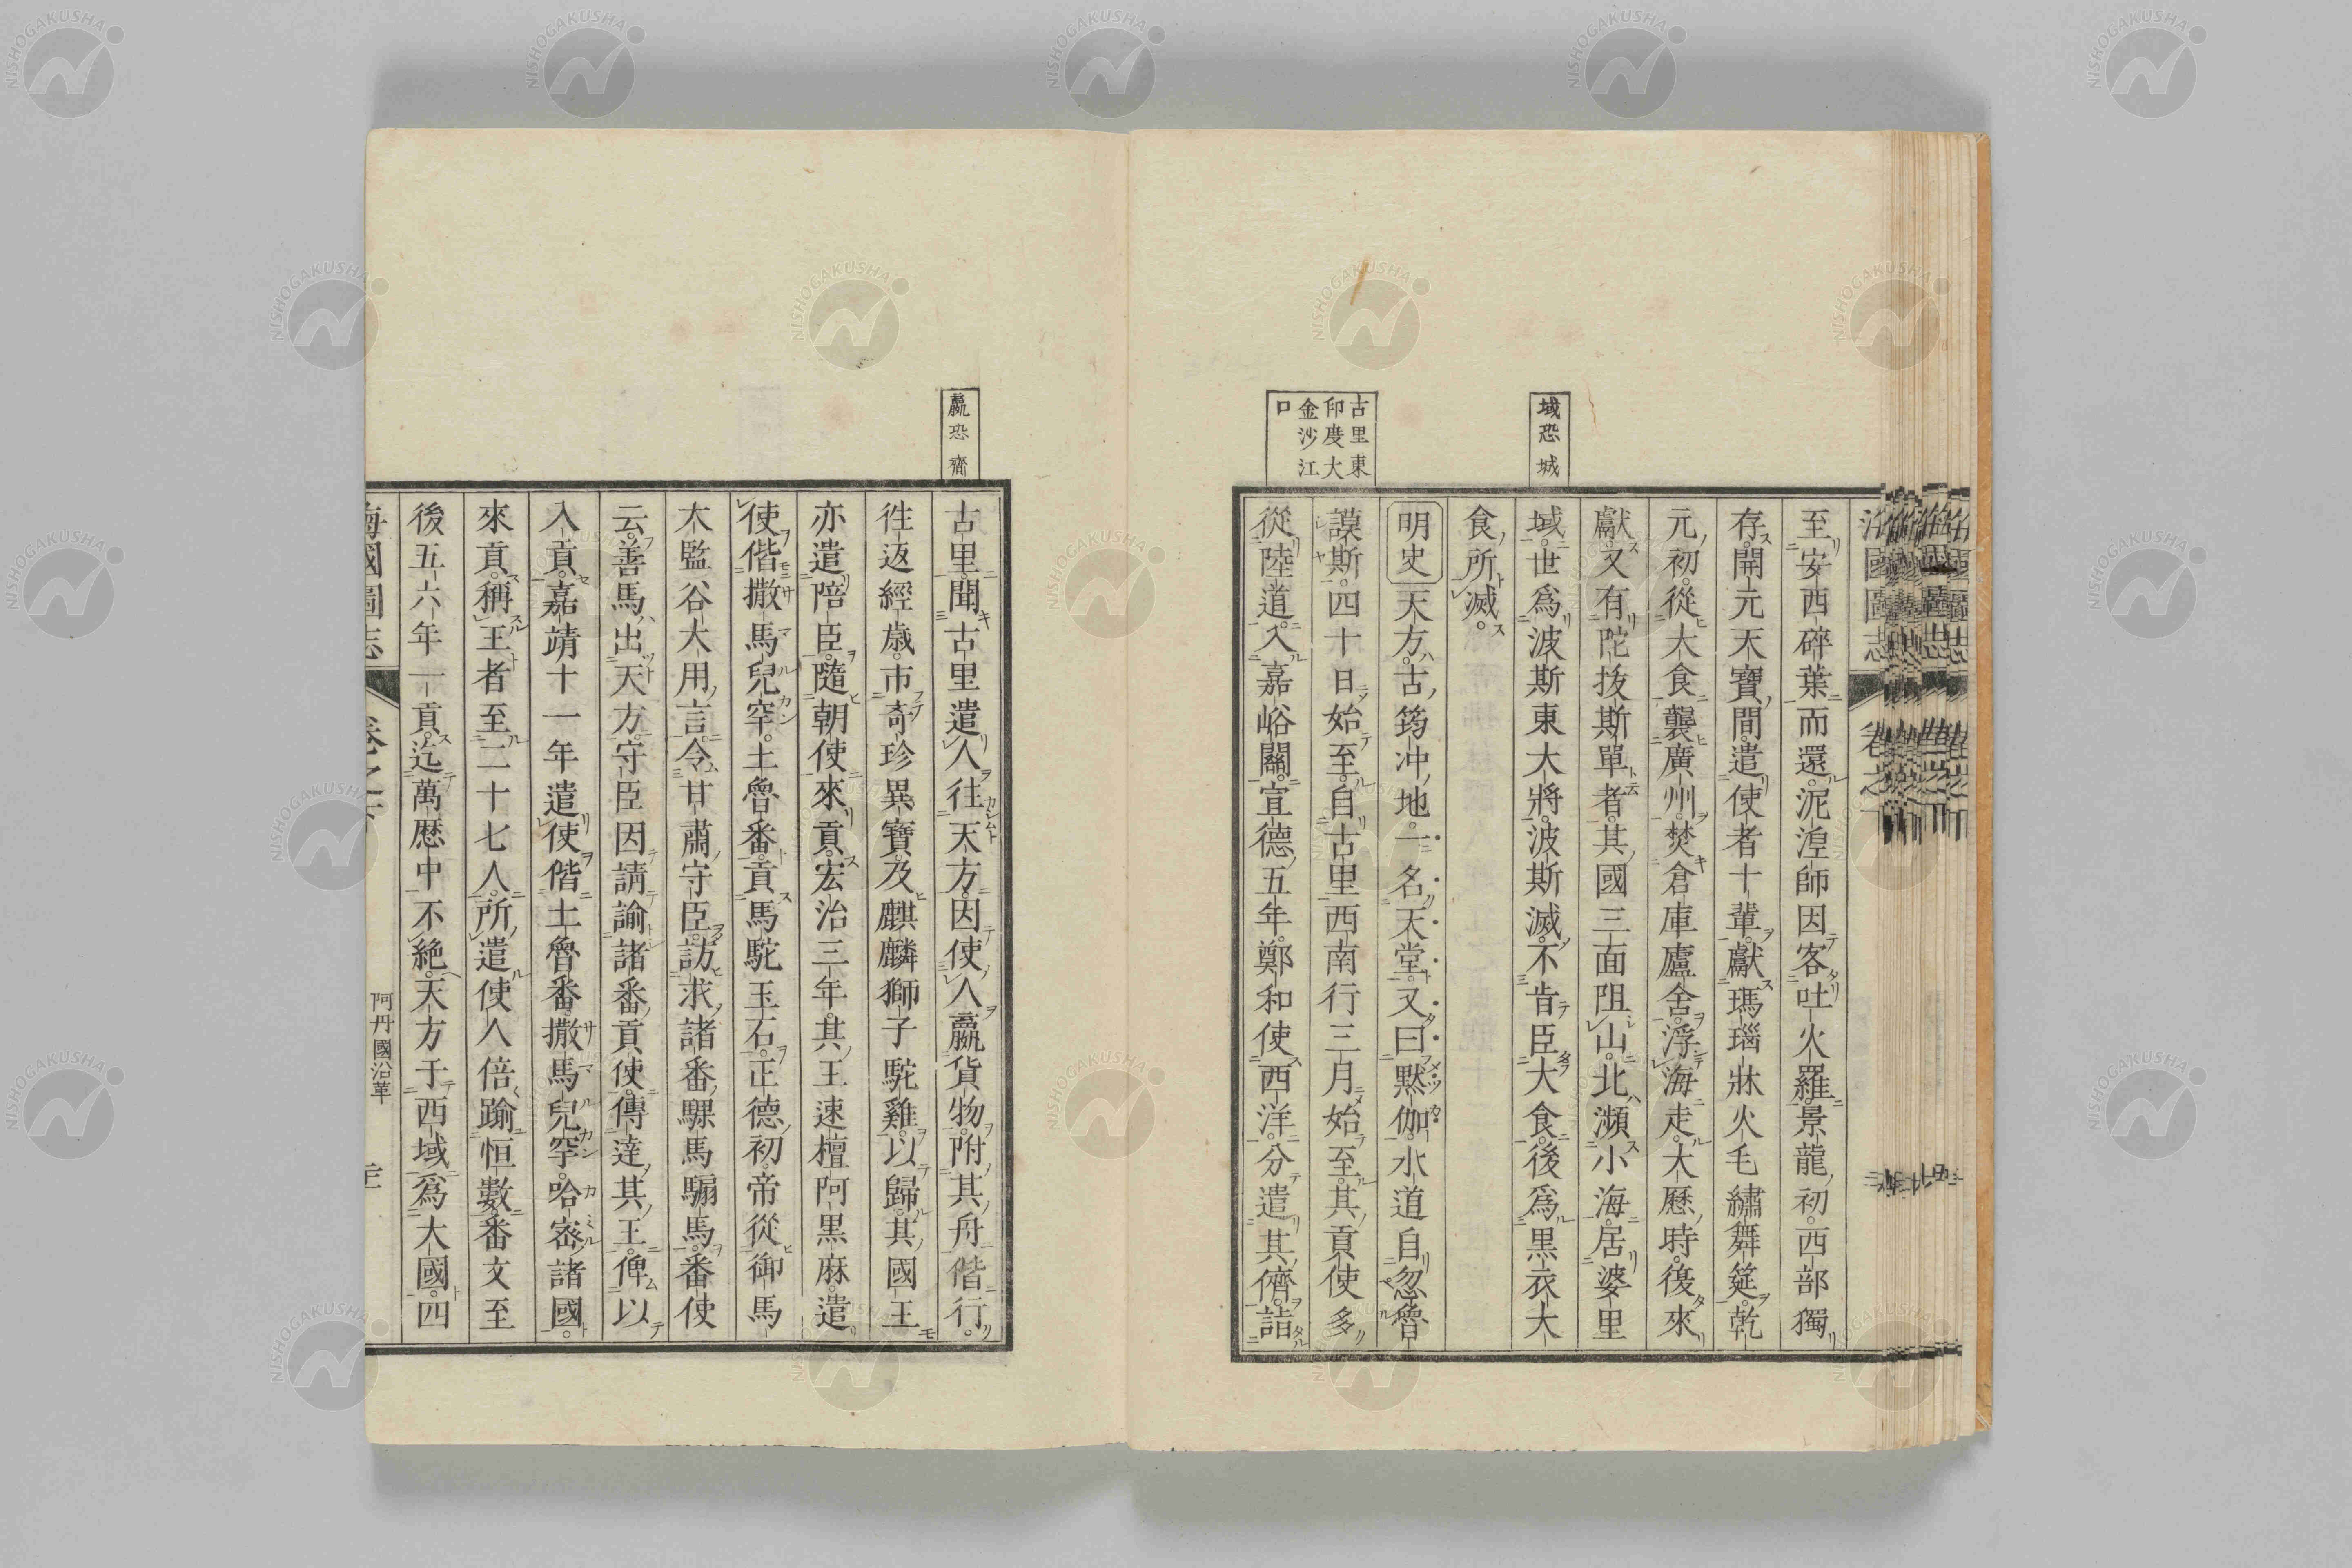 域恐城
古里東
印度大
金沙江
口
至安西碎葉而還泥湼師因客吐火羅景龍初西部獨
存開元天寶間遣使者十輩獻瑪瑙牀火毛繡舞筵乾
元初從大食襲廣州焚倉庫廬舍浮海走大曆時復來
獻又有陀拔斯單者其國三面阻山北瀕小海居婆里
域世爲波斯東大將波斯滅不肯臣大食後爲黒衣大
食所滅。
明史天方古筠冲地一名天堂又曰黙伽水道自忽魯
謨斯四十日始至自古里西南行三月始至其貢使多
從陸道入嘉峪關宣德五年鄭和使西洋分遣其儕詣
羸恐齎
古里聞古里遣人往天方因使人羸貨物附其舟偕行
徃返經歳市奇珍異寶及麒麟獅子駝雞以歸其國王
亦遣陪臣隨朝使來貢宏治三年其王速檀阿黒麻遣
使偕撒馬兒罕土魯番貢馬駝玉石正德初帝從御馬
太監谷大用言令甘肅守臣訪求諸番騍馬騸馬番使
云善馬出天方守臣因請諭諸番貢使傳達其王俾以
入貢嘉靖十一年遣使偕土魯番撒馬兒罕哈密諸國
來貢稱王者至二十七人所遣使人倍踰恒數番文至
後五六年一貢迄萬曆中不絶天方于西域爲大國四
海國圖志
阿丹國沿革